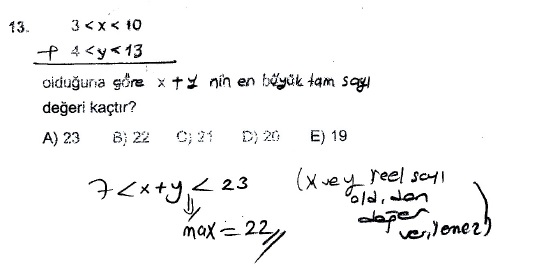 13. 3 < x < 10
+ 4 < y < 13
olduğuna göre x + y nin en büyük tam sayı
değeri kaçtır?
A) 23 B) 22 C) 21 D) 20 E) 19
7 < x + y < 23
max = 22
(x ve y reel sayı
old. dan
değer
verilemez)